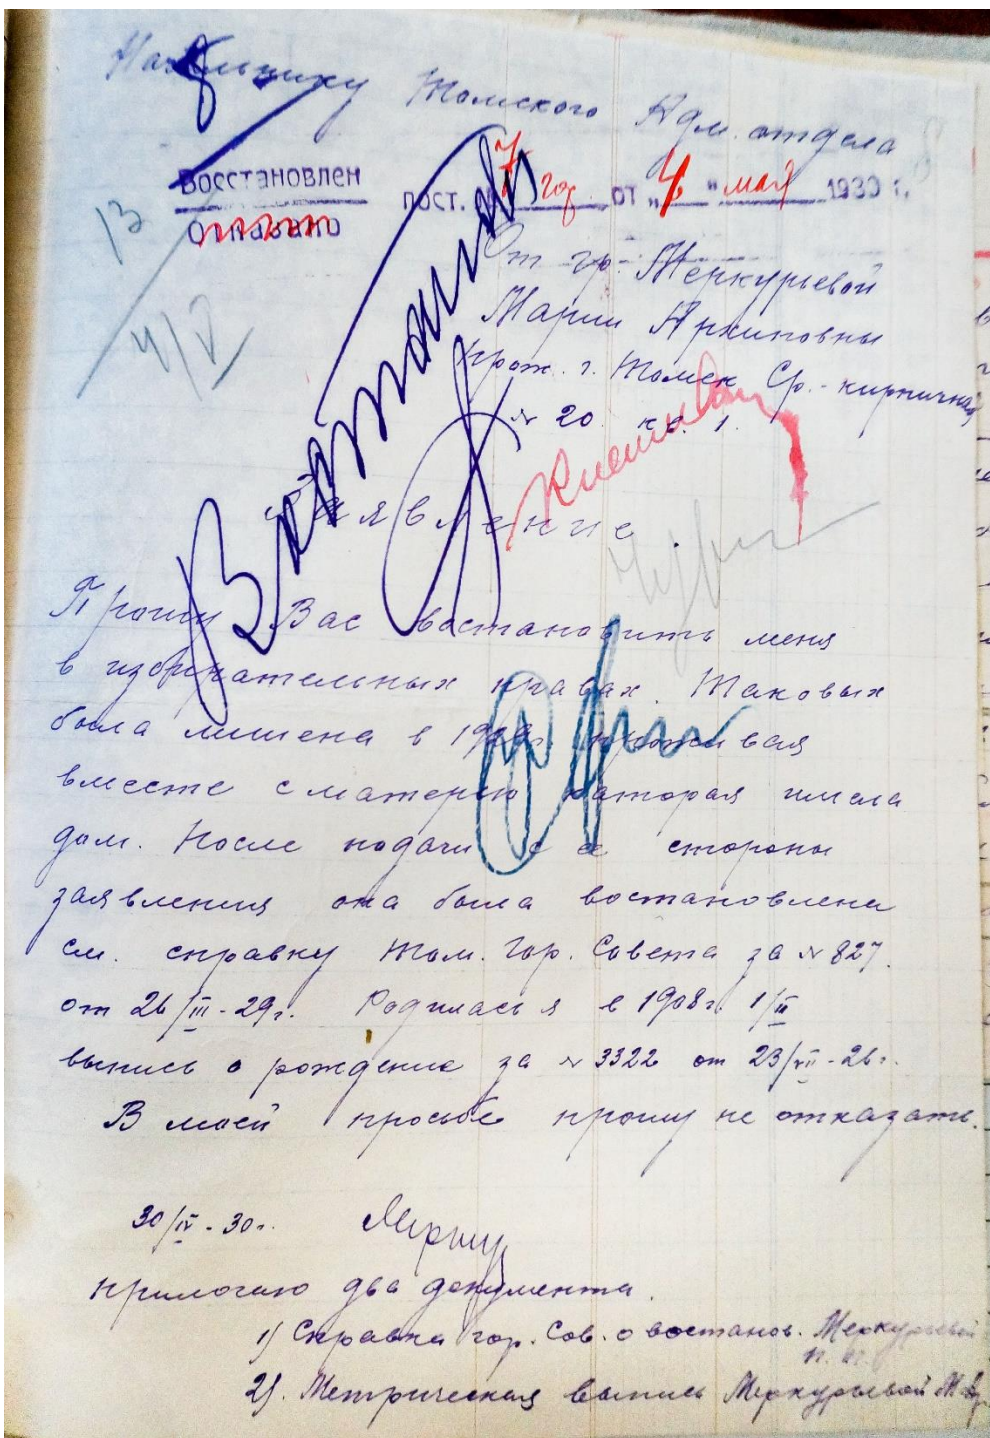 Начальнику Томского Адм. отдела
Восстановлен пост. 7 гор от "4" мая 1930 г.
Отказано
13
4/V
От гр. Меркурьевой
Марии Архиповны
прож. г. Томск Ср.-кирпичная
№ 20 кв. 1.
Востановить
Заявление.
Прошу Вас востановить меня
в избирательных правах. Таковых
была лишена в проживая
вместе с матерью которая имела
дом. После подачи с ее стороны
заявления она была востановлена
см. справку Том. Гор. Совета за № 827.
от 26/III-29г. Родилась я в 1908г. 1/III
выпись о рождение за № 3322 от 23/VII-26г.
В моей просьбе прошу не отказать.
30/IV-30г.
прилогаю два документа.
1) Справка гор. Сов. о востанов. Меркурьевой
2). Метрическая выпись Меркурьевой М.